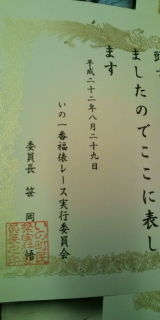 ましたのでここに表し
ます
平成二十二年八月二十九日
いの一番福俵レース実行委員会
委員長 笹岡